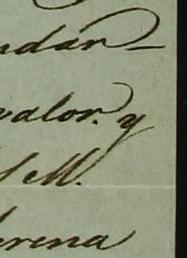 ndar-
valor. y
S.M.
rena